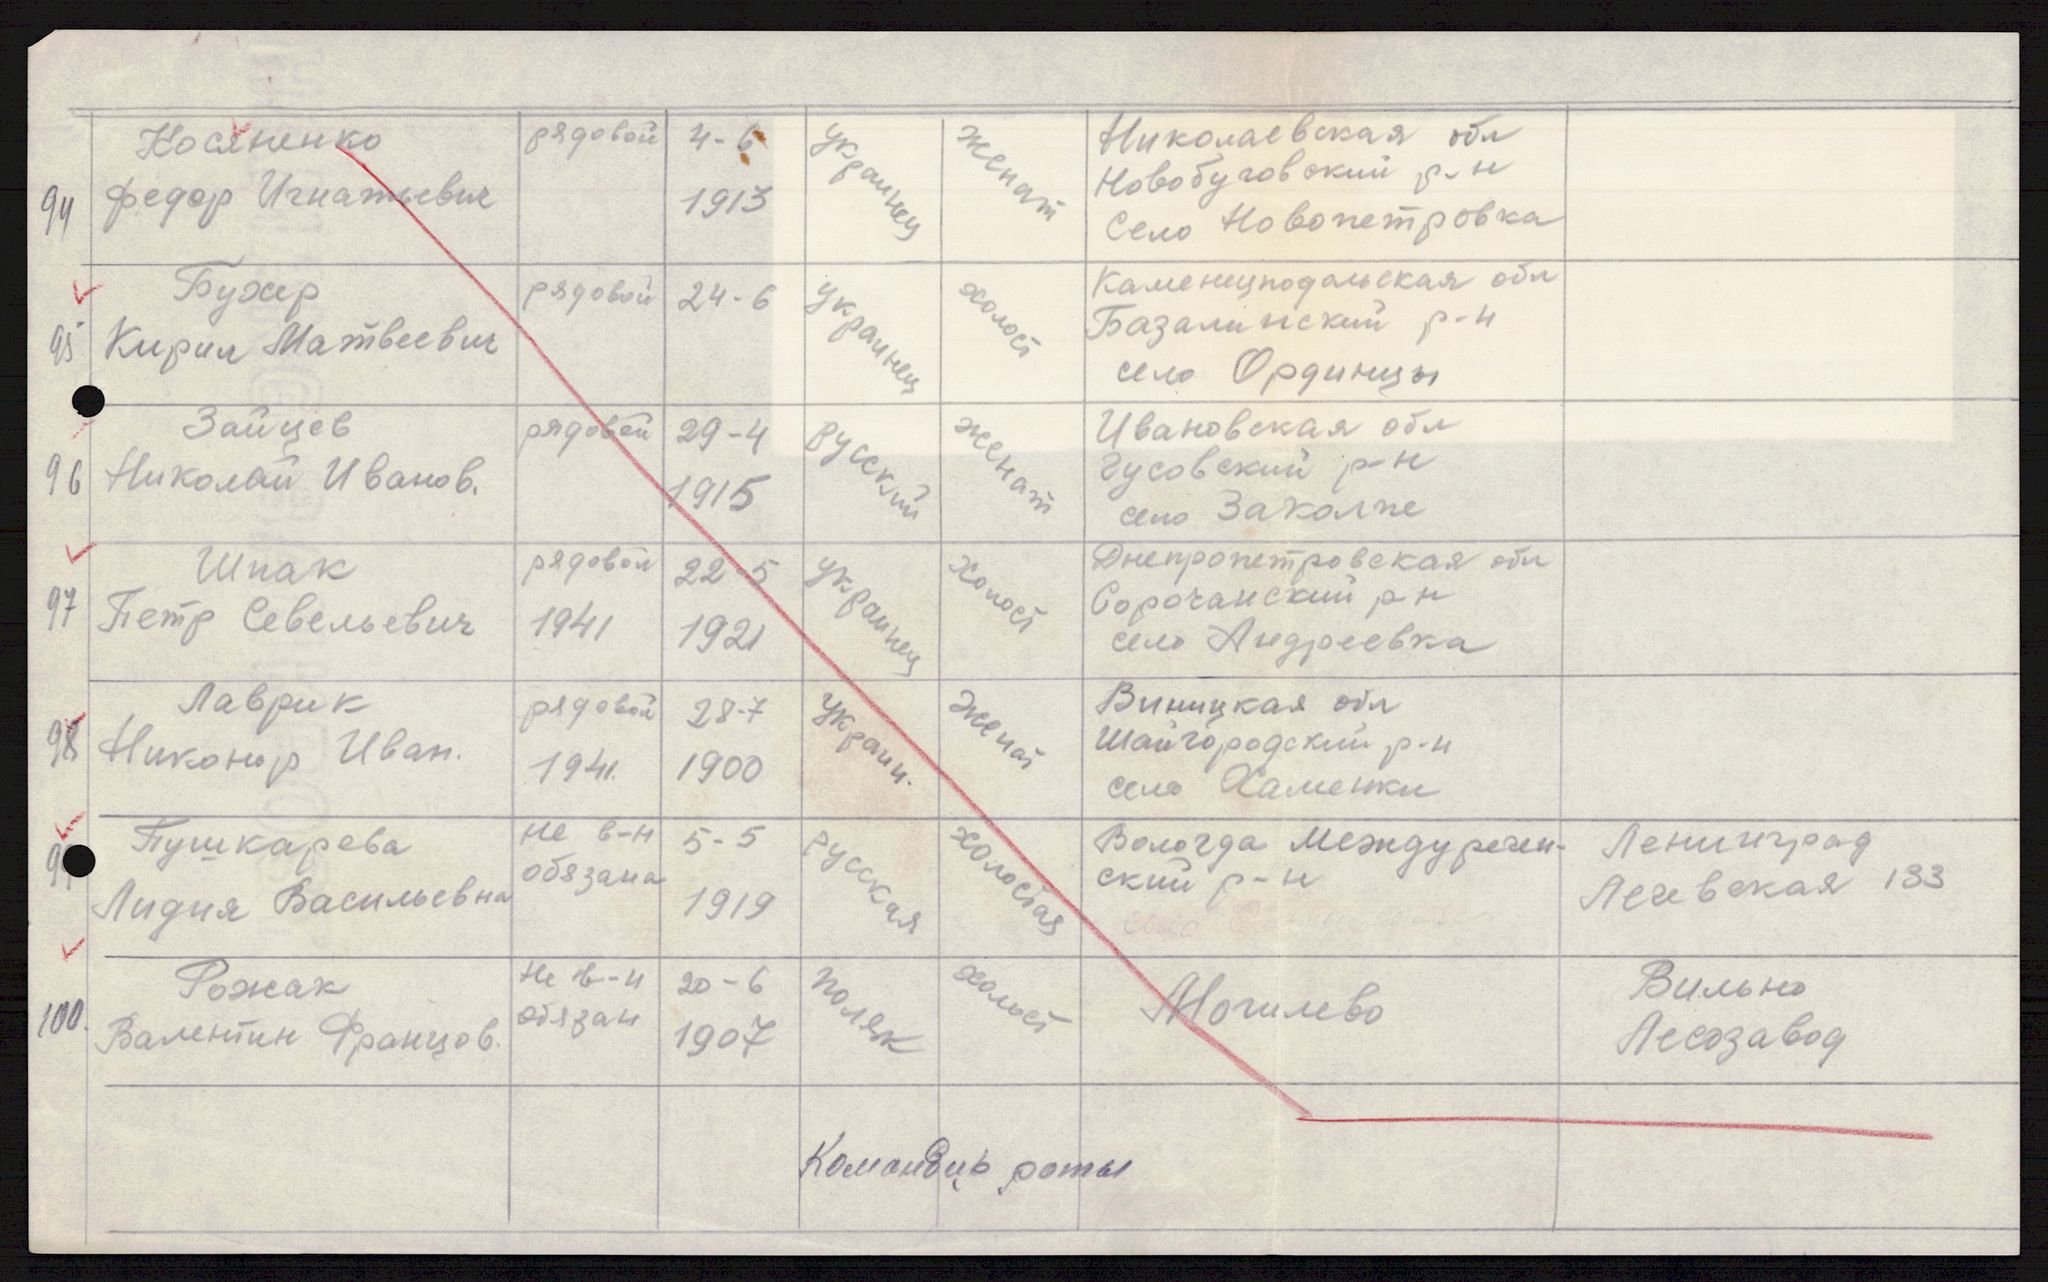 94 Косяненко
Федор Игнатьевич
рядовой
4-6
1913
украинец
женат
Николаевская обл
Новобуговский р-н
Село Новопетровка
95 Бухер
Кирил Матвеевич
рядовой
24-6
украинец
холост
Каменецподальская обл
Базалииский р-н
село Ординцы
96 Зайцев
Николай Иванов.
рядовой
29-4
1915
русский
женат
Ивановская обл
Гусовский р-н
село Заколпе
97 Шпак
Петр Севельевич
рядовой
1941
22-5
1921
украинец
холост
Днепропетровская обл
Сорочанский рн
село Андреевка
98 Лаврик
Никонор Иван.
рядовой
1941.
28-7
1900
украин.
женат
Виницкая обл
Шайгородский р-н
село Хаменки
99 Пушкарева
Лидия Васильевна
не в-н
обязана
5-5
1919
русская
холостая
Вологда Междуречен-
ский р-н
Ленинград
Лечевская 133
100. Рожак
Валентин Францов.
не в-н
обязан
20-6
1907
поляк
холост
Могилево
Вильно
Лесозавод
Командир роты